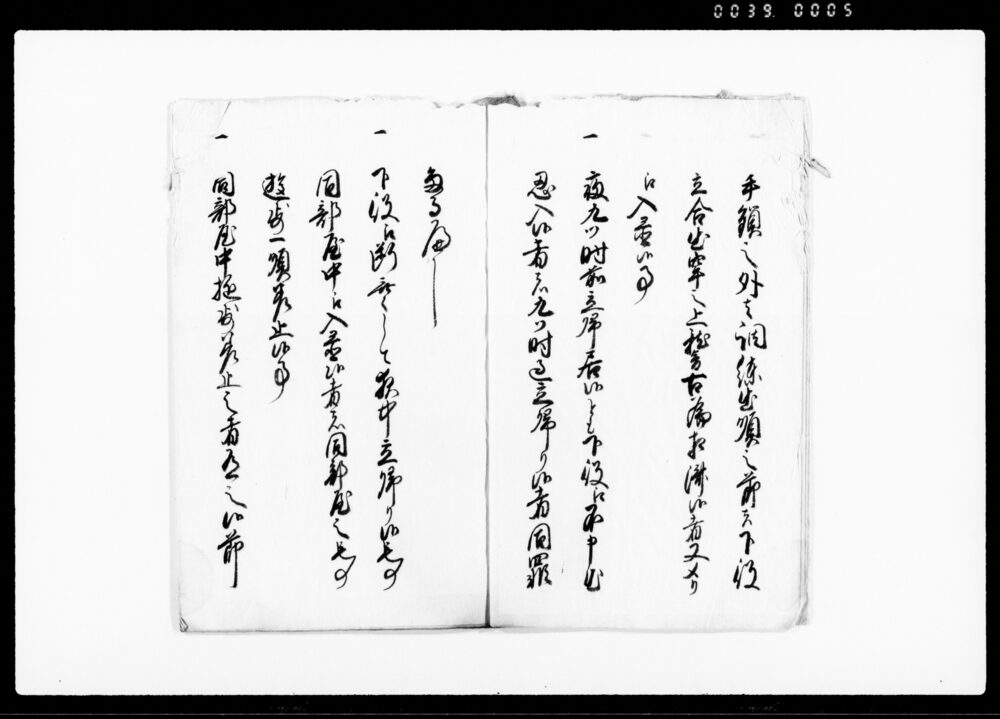 0039 0005
手鎖之外は調練出頭之節は下役
立合出牢之上稽古為相済候者又々
江入置候事
一 夜九ツ時前立帰居候とも下役江不申出
忍入候者は九ツ時過立帰り候者同罪
たるへし
一 下役江断なくして夜中立帰り候もの
同部屋中江入置候者は同部屋之もの
遊歩一順差止候事
一 同部屋中遊歩差止之者有之候節